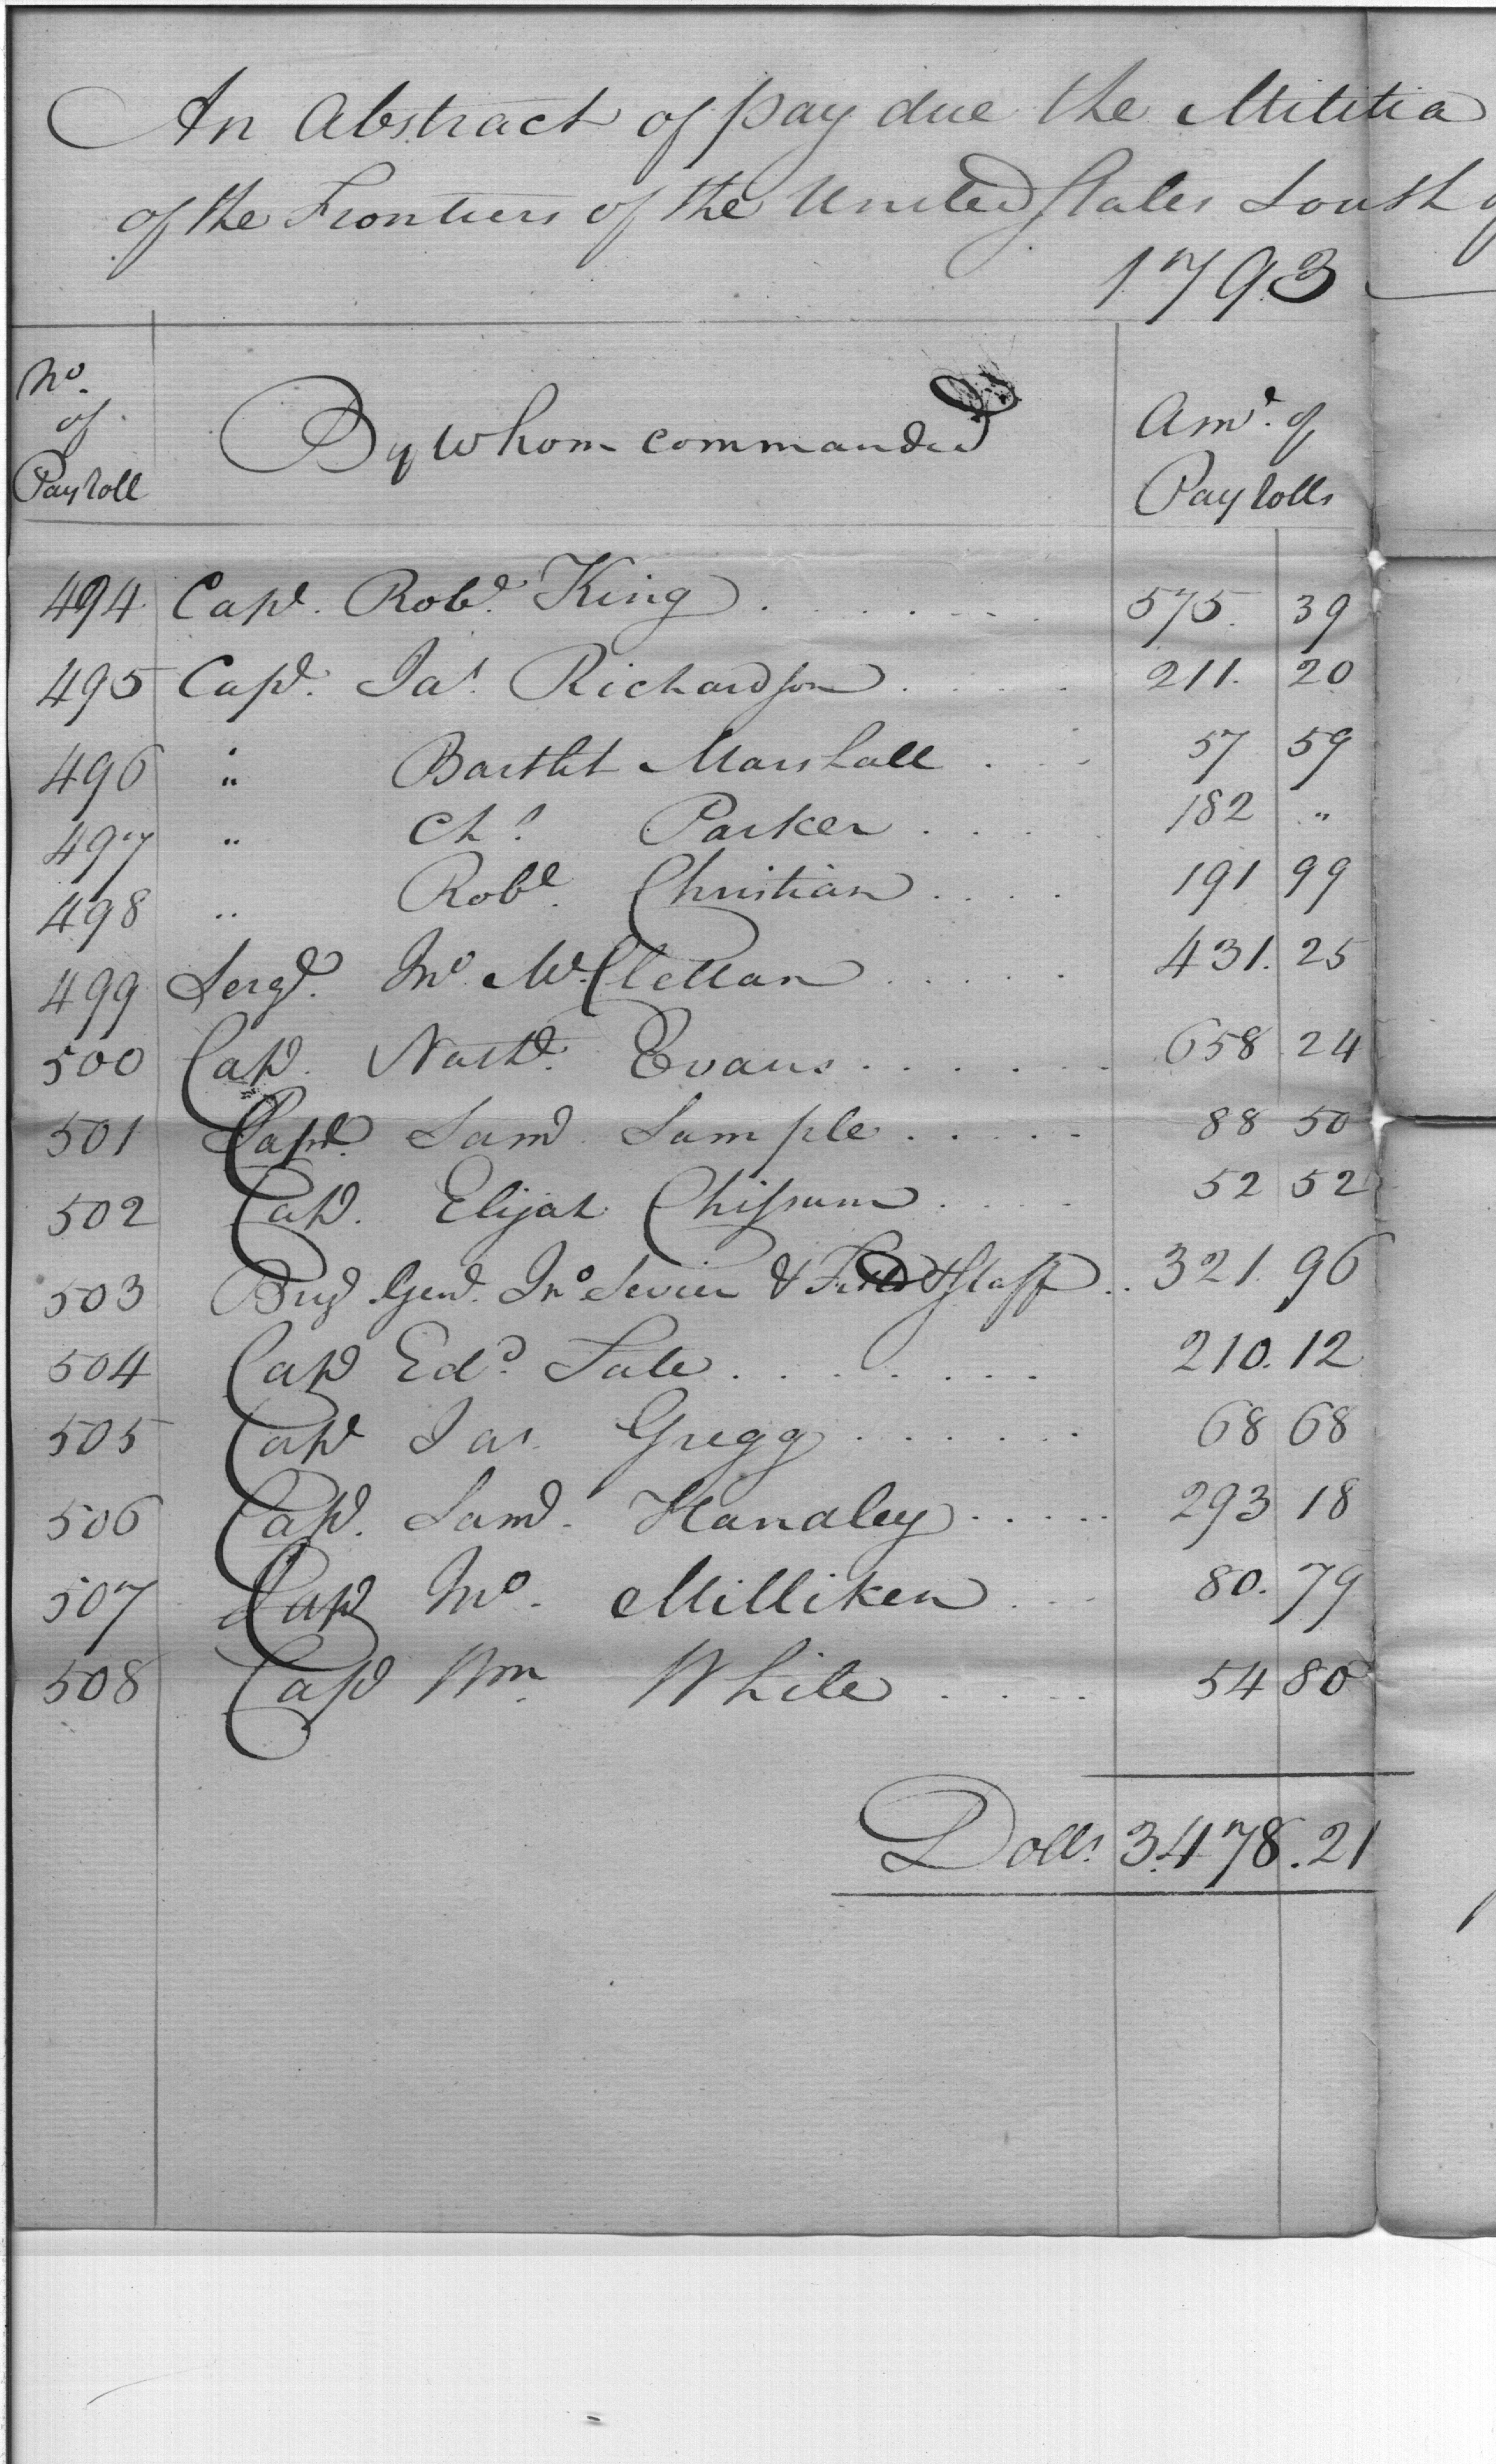 An Abstract of pay due the Militia
of the Frontiers of the United States South
1793
No. of Payroll By whom commanded Amt. of Payrolls
494 Capt. Robt. King 575. 39
495 Capt. Jas. Richardson 211. 20
496 " Bartlet Marshall 57 59
497 " Chs. Parker 182 "
498 " Robt. Christian 191 99
499 Sergt. Jno. McClellan 431. 25
500 Capt. Nathl. Evans 658 24
501 Capt. Saml. Sample 88 50
502 Capt. Elijah Chissum 52 52
503 Brig Genl. Jno Sevier & Field & Staff 321. 96
504 Capt Edd. Tate 210. 12
505 Capt Jas. Gregg 68 68
506 Capt. Saml. Handley 293 18
507 Capt Jno. Milliken 80. 79
508 Capt Wm. White 54 80
Dolls. 3478.21